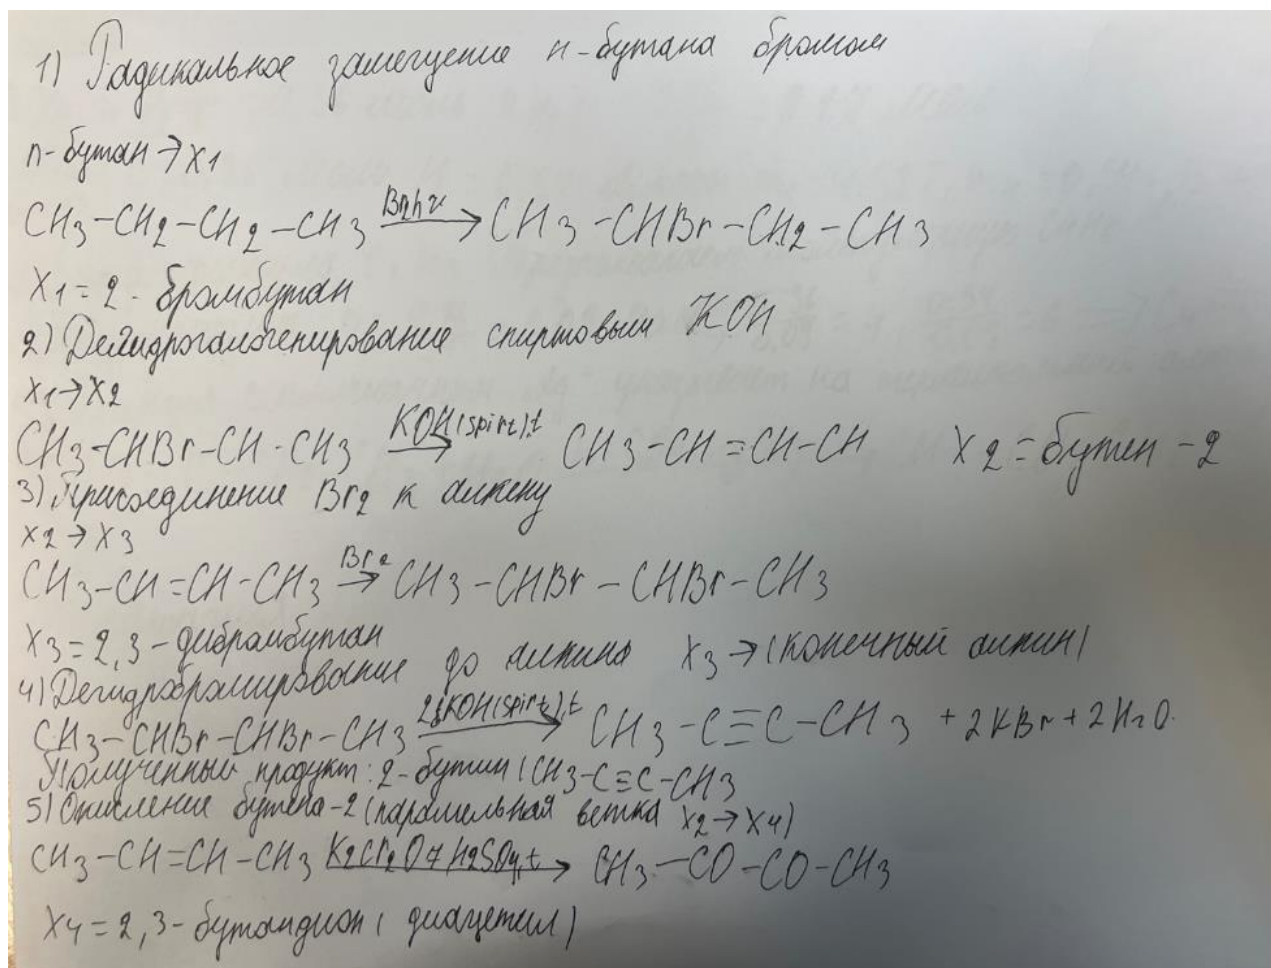 1) Радикальное замещение н-бутана бромом
n-бутан → X1
CH3-CH2-CH2-CH3 Br2hν→ CH3-CHBr-CH2-CH3
X1 = 2-бромбутан
2) Дегидрогалогенирование спиртовым KOH
X1→X2
CH3-CHBr-CH-CH3 KOH(spirt),t→ CH3-CH=CH-CH X2=бутен-2
3) Присоединение Br2 к алкену
X2→X3
CH3-CH=CH-CH3 Br2→ CH3-CHBr-CHBr-CH3
X3=2,3-дибромбутан
4) Дегидробромирование до алкина X3→(конечный алкин)
CH3-CHBr-CHBr-CH3 2KOH(spirt),t→ CH3-C≡C-CH3 + 2KBr+2H2O.
Полученный продукт: 2-бутин (CH3-C≡C-CH3
5) Окисление бутена-2 (параллельная ветка X2→X4)
CH3-CH=CH-CH3 K2Cr2O7 H2SO4,t→ CH3-CO-CO-CH3
X4=2,3-бутандион (диацетил)